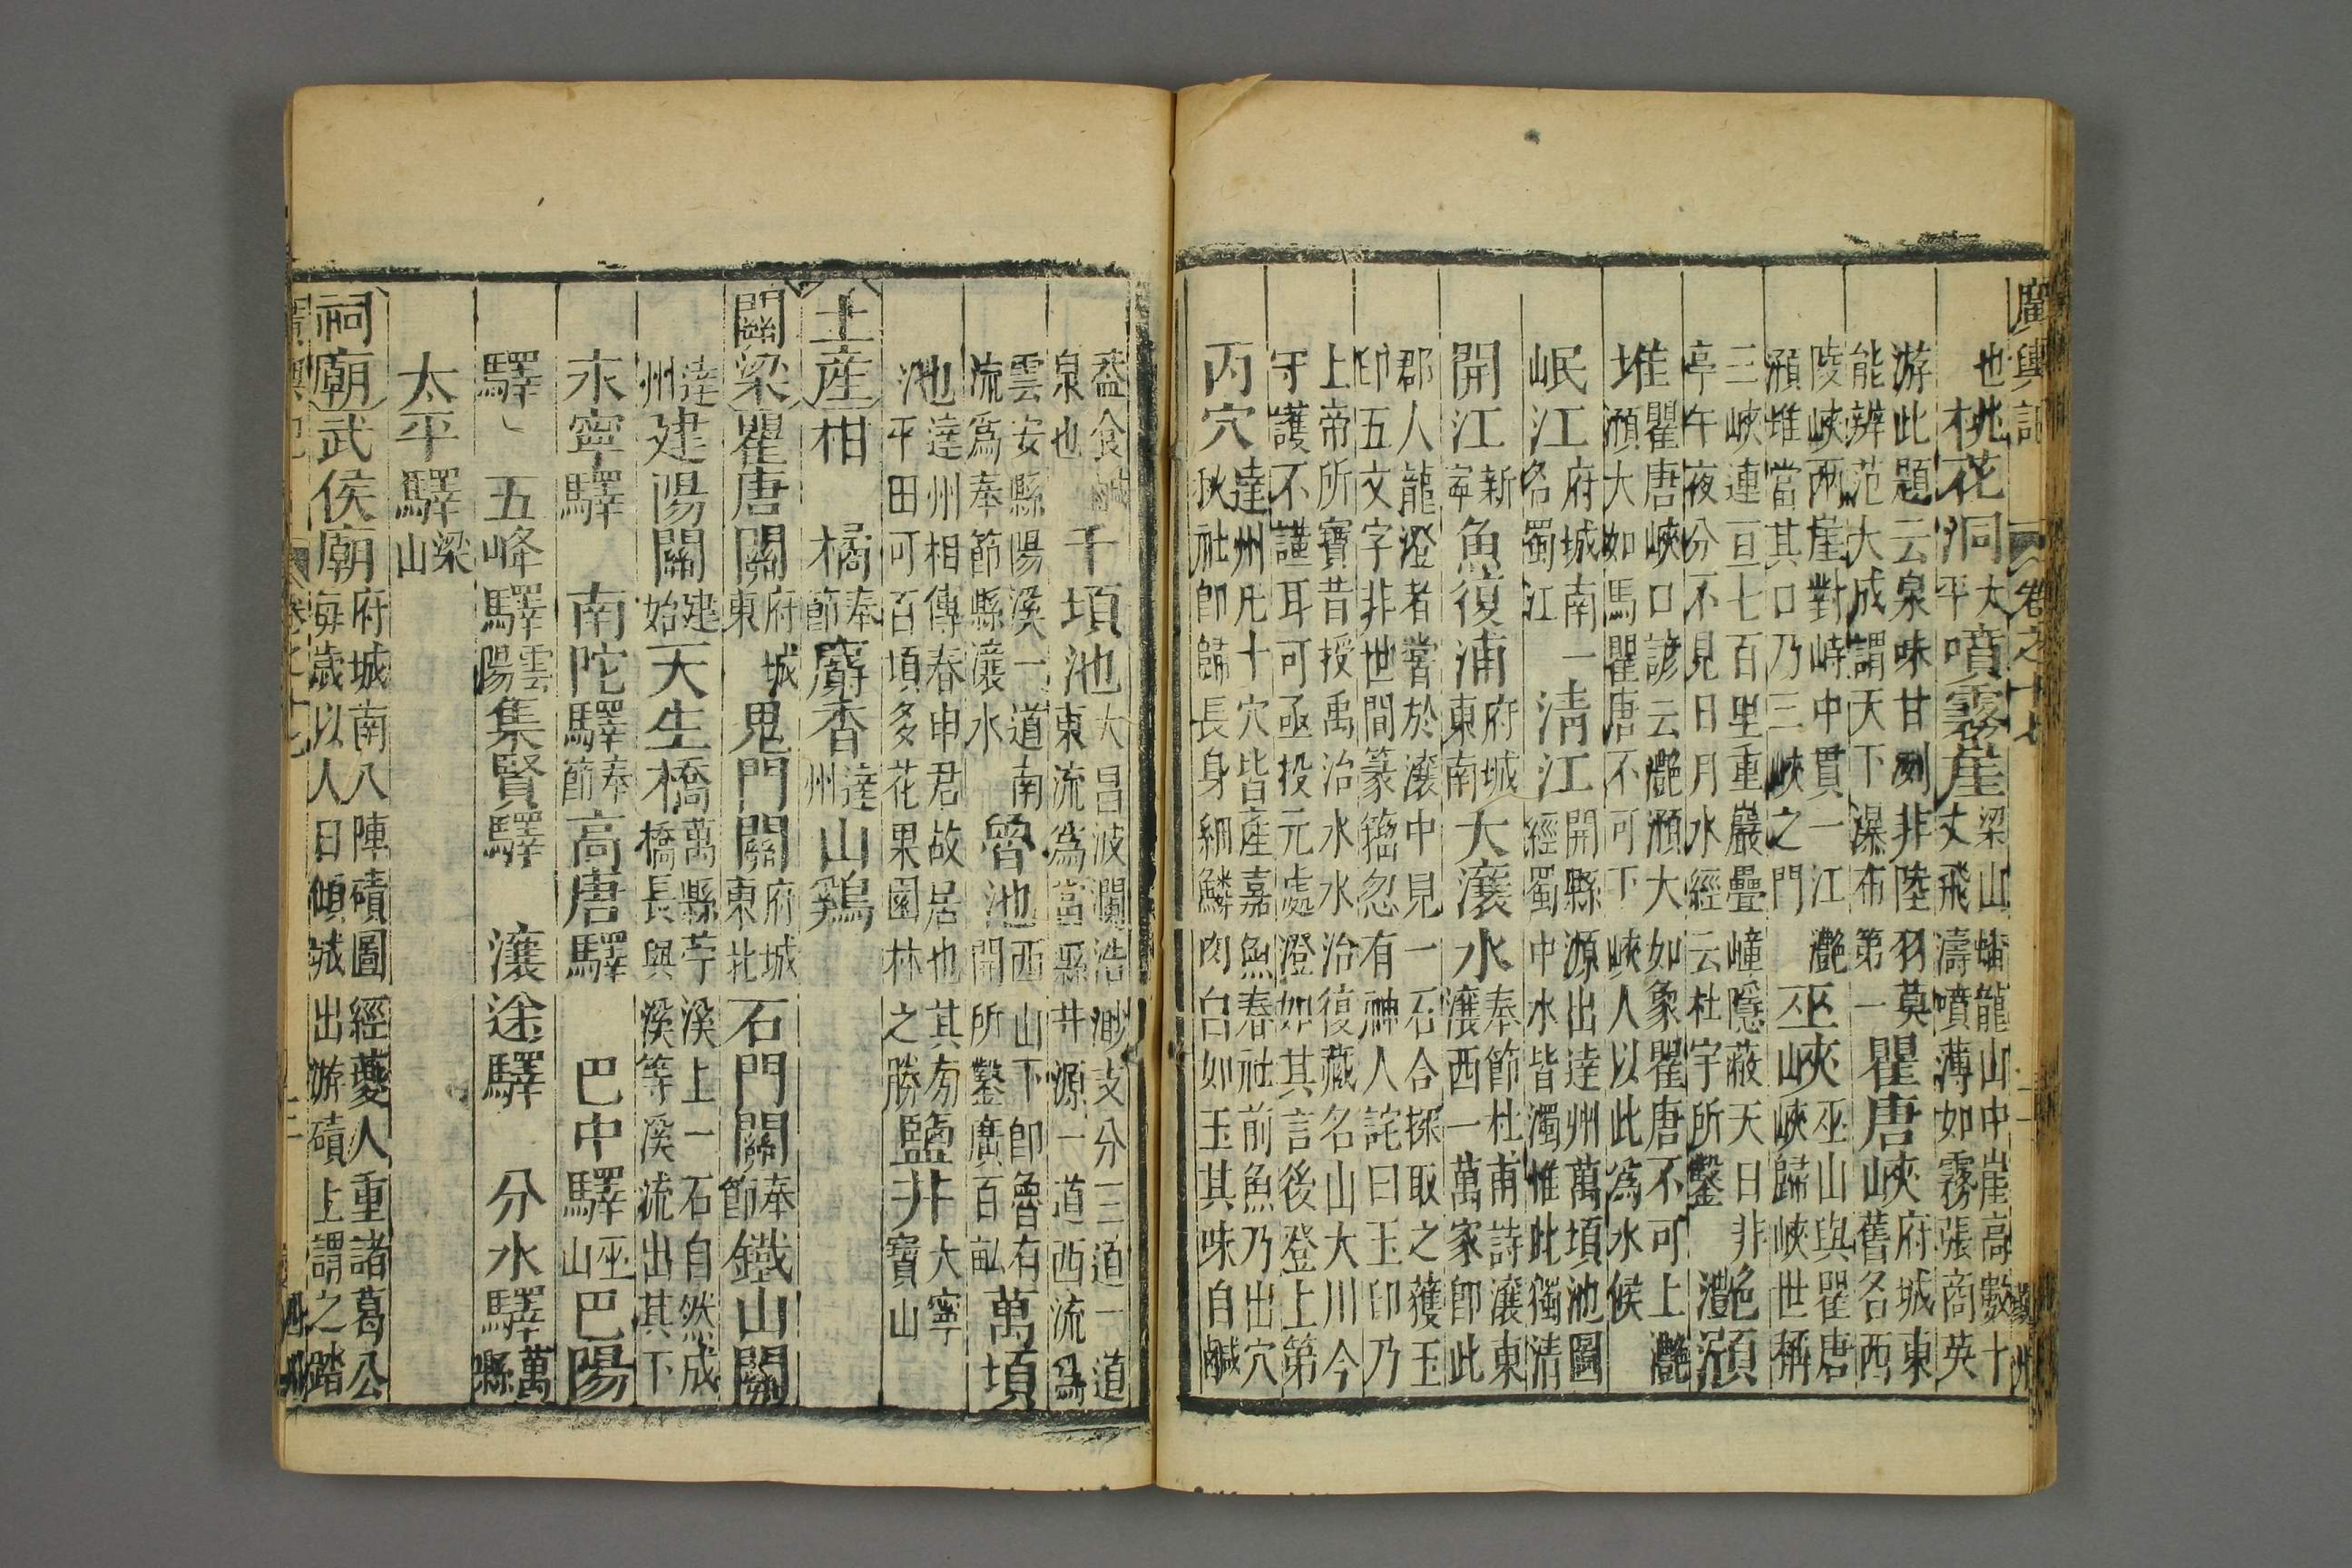 廣輿記 卷之十七 二 夔州
也 桃花洞太平 噴霧崖梁山蟠龍山中崖高數十丈飛濤噴薄如霧張商英
游此題云泉味甘冽非陸羽莫能辨范大成謂天下瀑布第一 瞿唐峽府城東舊名西
陵峽兩崖對峙中貫一江灩澦堆當其口乃三峽之門 巫峽巫山與瞿唐峽歸峽世稱
三峽連亘七百里重巖疊嶂隱蔽天日非亭午夜分不見日月水經云杜宇所鑿 灩澦
堆瞿唐峽口諺云灩澦大如象瞿唐不可上灩澦大如馬瞿唐不可下峽人以此為水候
岷江府城南一名蜀江 清江開縣源出達州萬頃池圖經蜀中水皆濁惟此獨清
開江新寧 魚復浦府城東南 大瀼水奉節杜甫詩瀼東瀼西一萬家即此
郡人龍澄者嘗於瀼中見一石合探取之獲玉印五文字非世間篆籀忽有神人詫曰玉印乃
上帝所寶昔授禹治水水治復藏名山大川今守護不謹耳可亟投元處澄如其言後登上第
丙穴達州凡十穴皆產嘉魚春社前魚乃出穴秋社即歸長身細鱗肉白如玉其味自鹹
蓋食鹹泉也 千頃池大昌波瀾浩渺支分三道一道東流為當縣井源一道西流為
雲安縣陽溪一道南流為奉節縣瀼水 魯池開西山下即魯有所鑿廣百畝 萬頃
池達州相傳春申君故居也其旁平田可百頃多花果園林之勝 鹽井大寧寶山
土產 柑 橘奉節 麝香達州 山鷄
關梁 瞿唐關府城東 鬼門關府城東北 石門關奉節 鐵山關
達州 建陽關建始 天生橋萬縣苧溪上一石自然成橋長與溪等溪流出其下
永寧驛 南陀驛奉節 高唐驛 巴中驛巫山 巴陽
驛 五峰驛雲陽 集賢驛 瀼途驛 分水驛萬縣
太平驛梁山
祠廟 武侯廟府城南八陣磧圖經夔人重諸葛公每歲以人日傾城出游磧上謂之踏